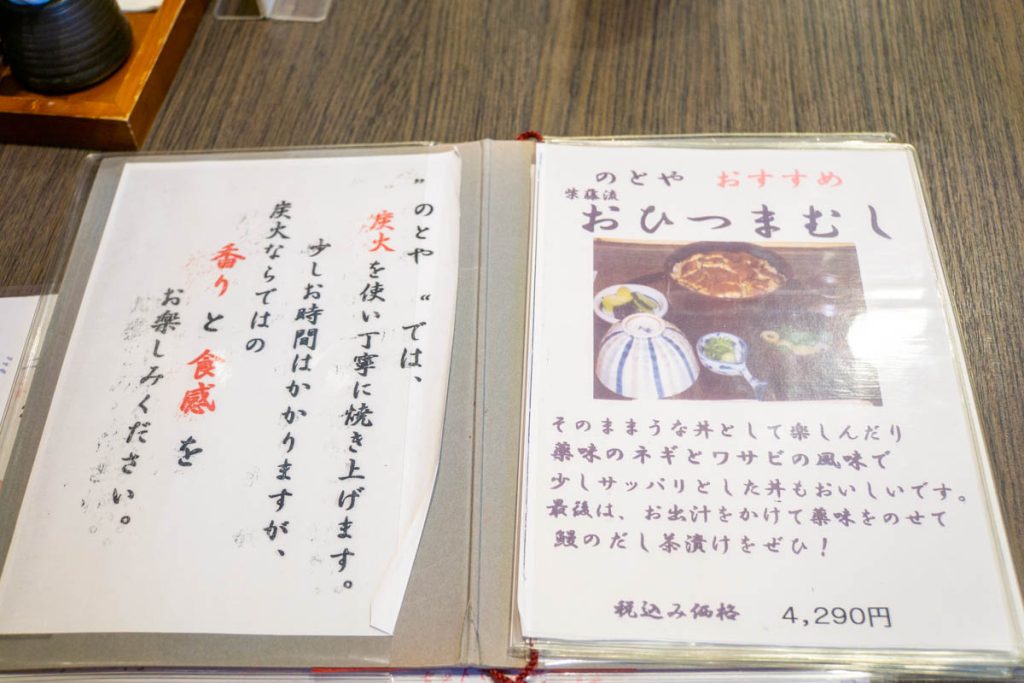 "のとや" では、
炭火を使い丁寧に焼き上げます。
少しお時間はかかりますが、
炭火ならではの
香りと食感を
お楽しみください。
のとや おすすめ
柴藤流
おひつまむし
そのままうな丼として楽しんだり
薬味のネギとワサビの風味で
少しサッパリとした丼もおいしいです。
最後は、お出汁をかけて薬味をのせて
鰻のだし茶漬けをぜひ!
税込み価格 4,290円
セット